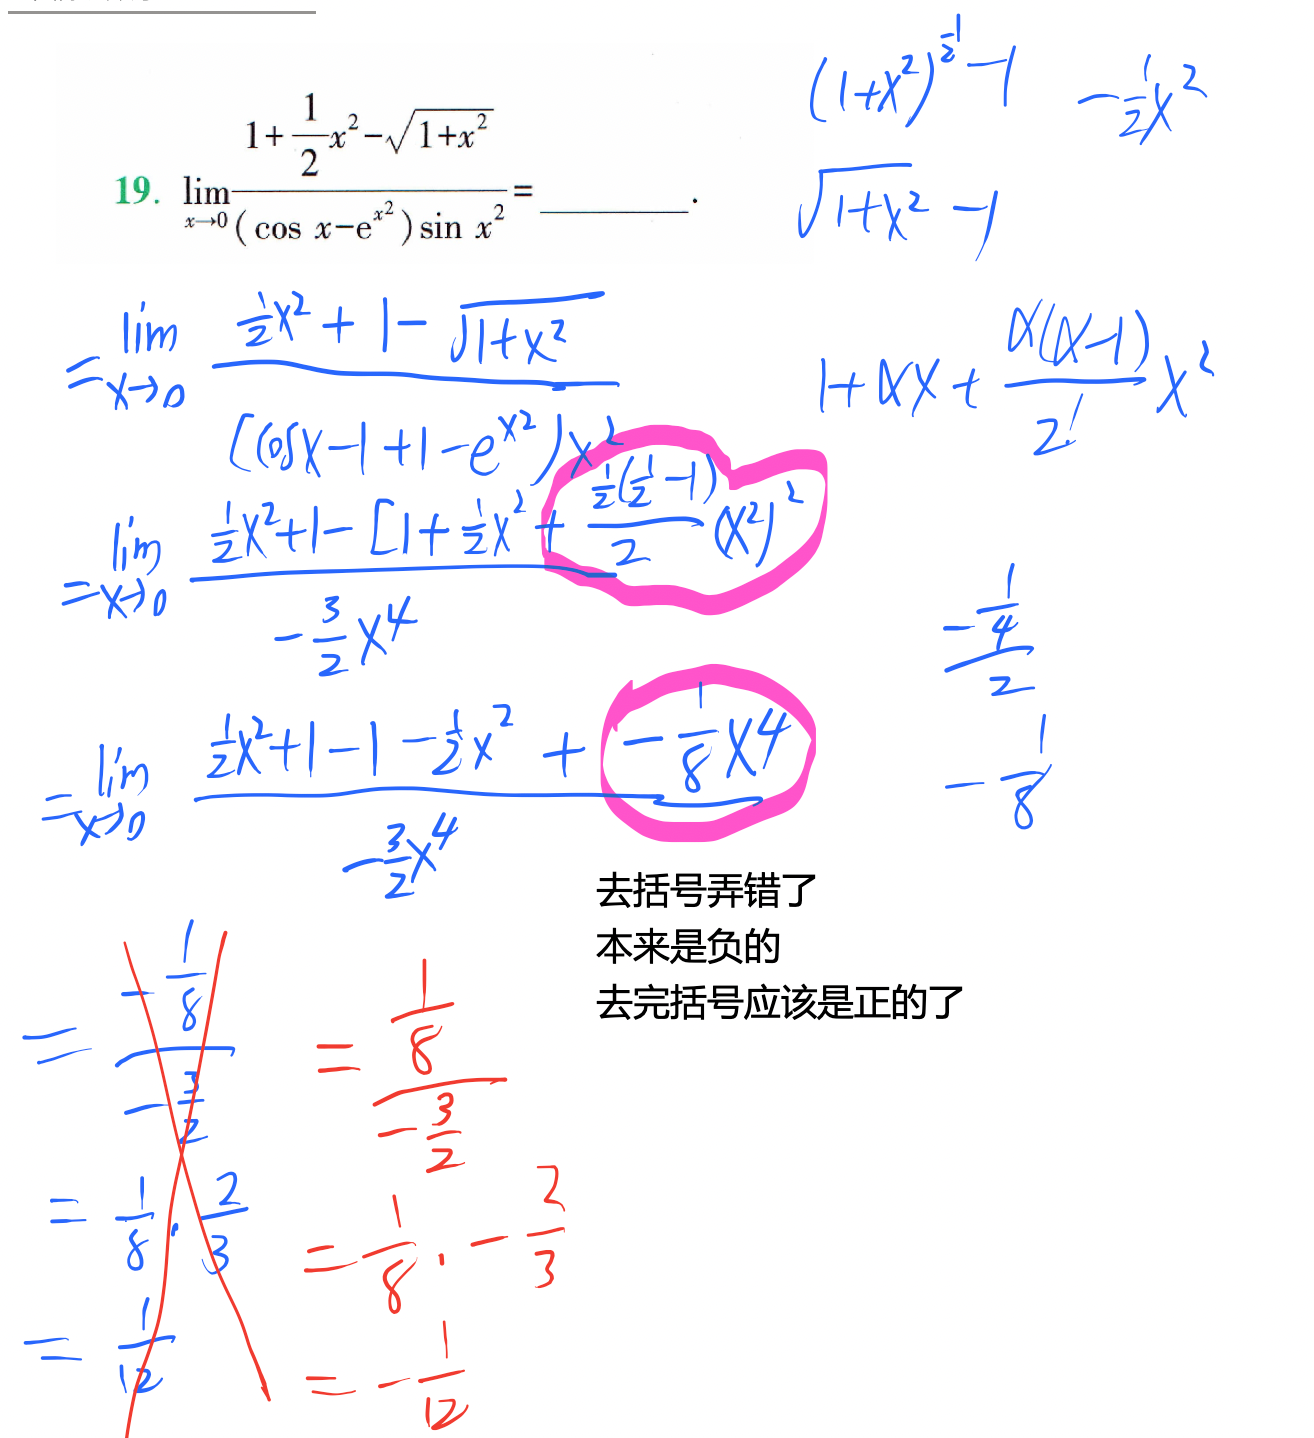 19. lim x→0 (1+1/2x²−√(1+x²))/((cos x−e^(x²))sin x²) = ______.
(1+x²)^(1/2) −1   −1/2x²
√(1+x²) −1
= lim x→0 (1/2x² + 1 − √(1+x²))/([cosx−1+1−e^(x²))x²
1+αx+ α(α−1)/2! x²
= lim x→0 (1/2x²+1−[1+1/2x²+ (1/2(1/2−1))/2 (x²)²)/(−3/2x⁴)
(−1/4)/2
−1/8
= lim x→0 (1/2x²+1−1−1/2x² + −1/8x⁴)/(−3/2x⁴)
去括号弄错了
本来是负的
去完括号应该是正的了
= (−1/8)/(−3/2)
= 1/8 · 2/3
= 1/12
= (1/8)/(−3/2)
= 1/8 · −2/3
= −1/12